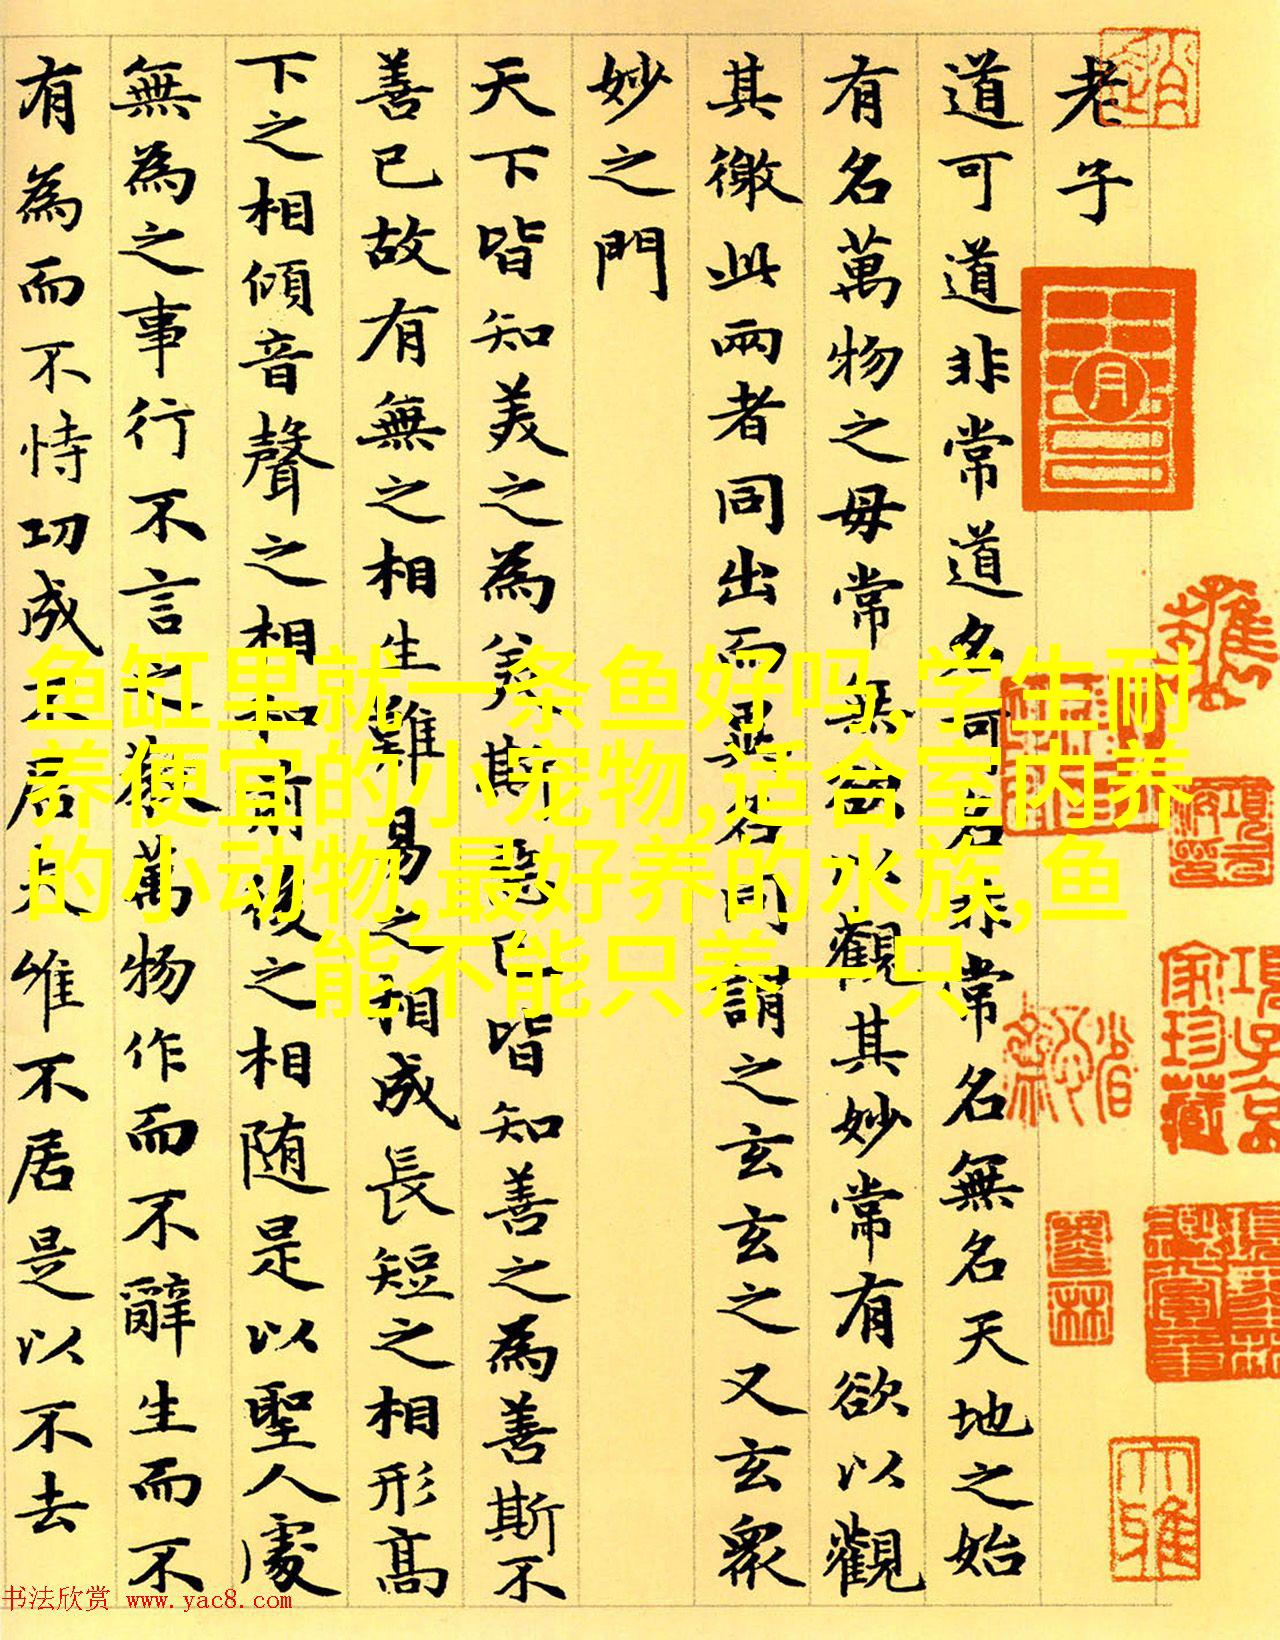 老子
道可道非常道名可名非常名無名天地之始
有名萬物之母常無欲以觀其妙常有欲以觀
其徼此兩者同出而異名同謂之玄玄之又玄衆
妙之門
天下皆知美之為美斯惡已皆知善之為善斯不
善已故有無之相生難易之相成長短之相形高
下之相傾音聲之相和前後之相随是以聖人處
無為之事行不言之教萬物作而不辭生而不
有為而不恃功成不居夫唯不居是以不去
鱼缸里就一条鱼好吗,学生耐
养便宜的小宠物,适合室内养
的小动物,最好养的水族,鱼
能不能只养一只
項子京
家珍藏
大雅
书法欣赏 www.yac8.com